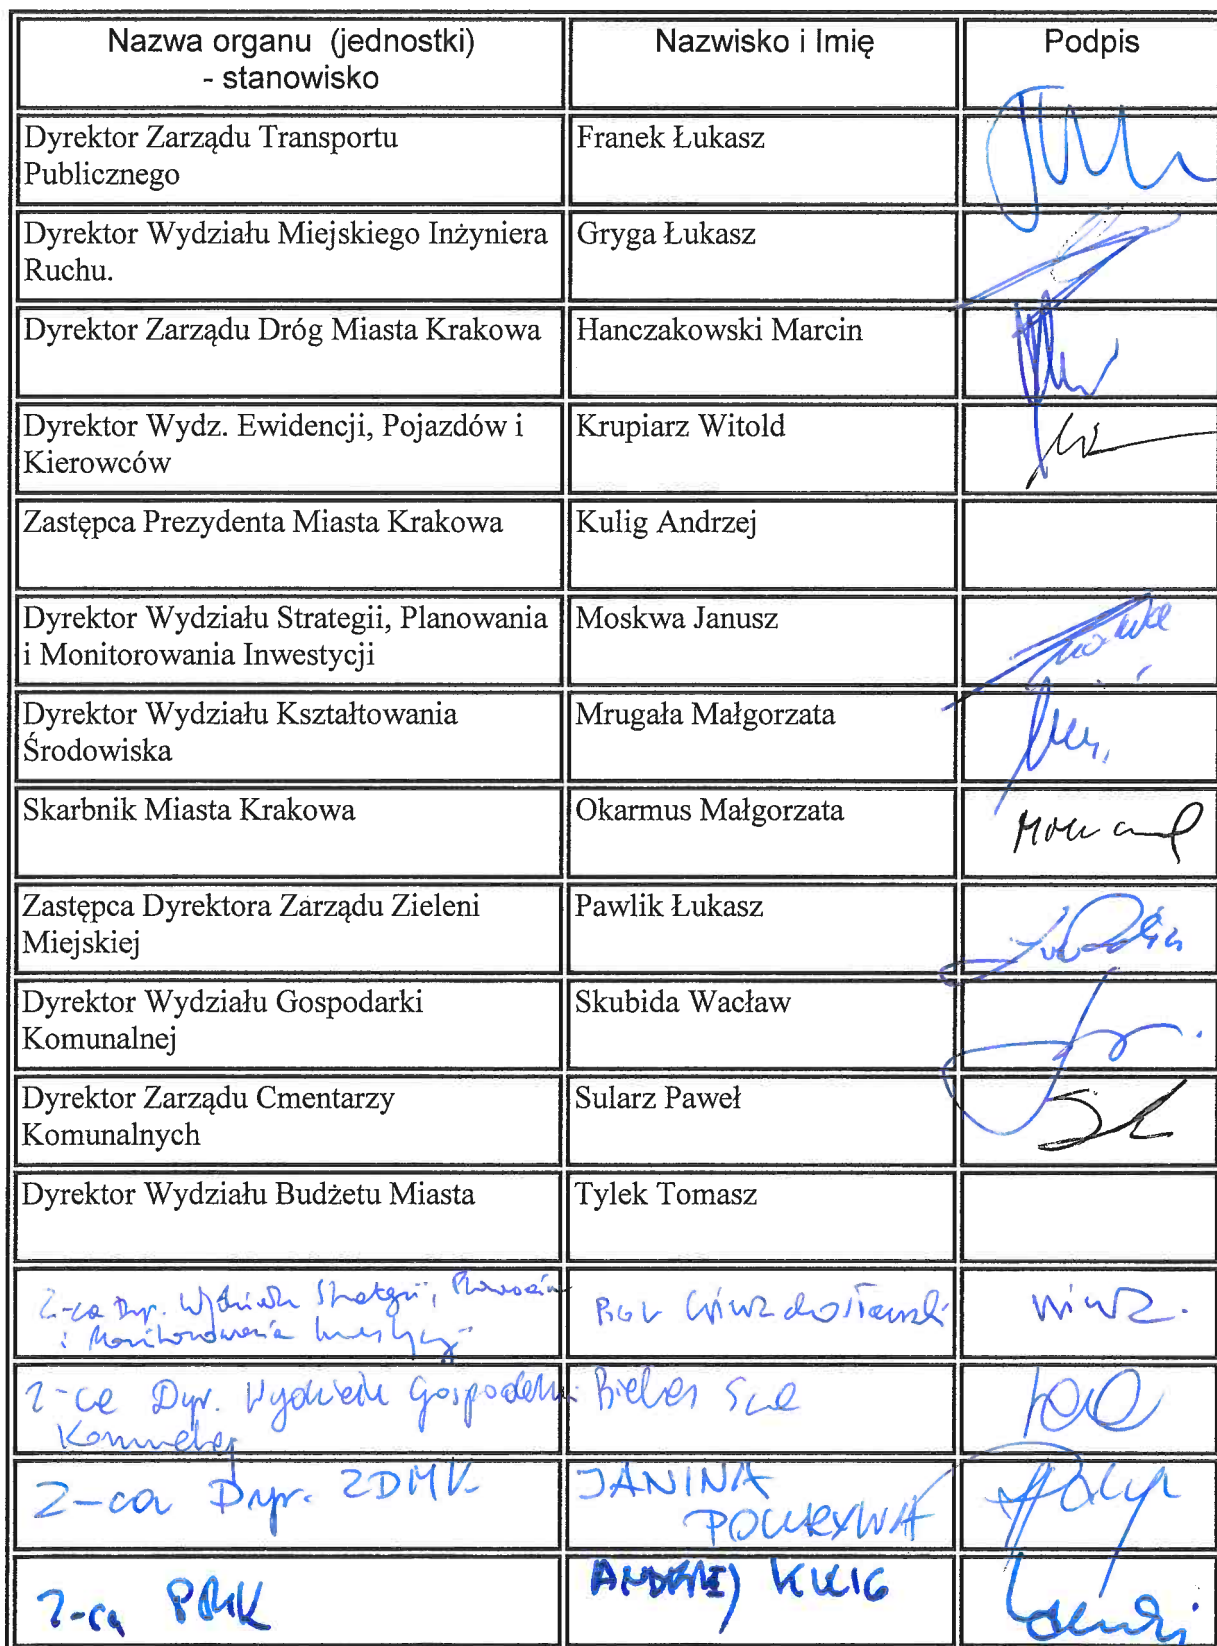 Nazwa organu (jednostki)
- stanowisko
Nazwisko i Imię
Podpis
Dyrektor Zarządu Transportu
Publicznego
Franek Łukasz
Dyrektor Wydziału Miejskiego Inżyniera
Ruchu.
Gryga Łukasz
Dyrektor Zarządu Dróg Miasta Krakowa
Hanczakowski Marcin
Dyrektor Wydz. Ewidencji, Pojazdów i
Kierowców
Krupiarz Witold
Zastępca Prezydenta Miasta Krakowa
Kulig Andrzej
Dyrektor Wydziału Strategii, Planowania
i Monitorowania Inwestycji
Moskwa Janusz
Dyrektor Wydziału Kształtowania
Środowiska
Mrugała Małgorzata
Skarbnik Miasta Krakowa
Okarmus Małgorzata
Zastępca Dyrektora Zarządu Zieleni
Miejskiej
Pawlik Łukasz
Dyrektor Wydziału Gospodarki
Komunalnej
Skubida Wacław
Dyrektor Zarządu Cmentarzy
Komunalnych
Sularz Paweł
Dyrektor Wydziału Budżetu Miasta
Tylek Tomasz
Z-ca Dyr. Wydziału Strategii,
i Monitorowania Inwestycji
Z-ca Dyr. Wydziału Gospodarki
Komunalnej
Z-ca Dyr. ZDMK
JANINA
POKRYWA
Z-ca PMK
ANDRZEJ KULIG